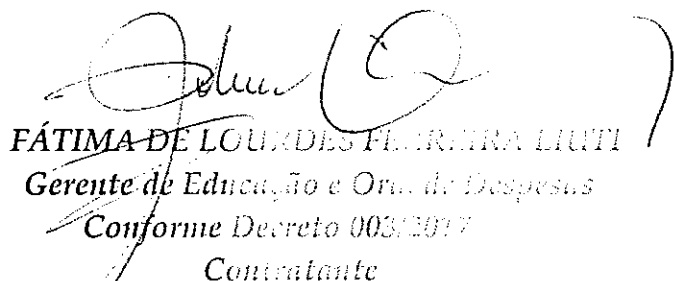 FÁTIMA DE LOURDES FERREIRA LIUTI
Gerente de Educação e Ord. de Despesas
Conforme Decreto 003/2017
Contratante